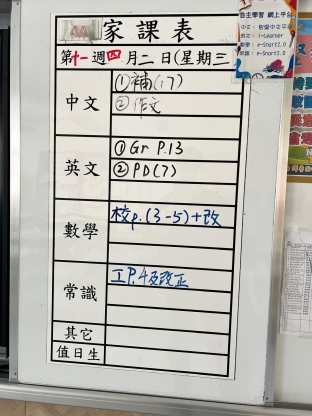 4A 家課表
第十一週 四月二日(星期三
中文
①補(17)
②作文
英文
①Gr P.13
②PD(7)
數學
校p.(3-5)+改
常識
工P.4及改正
其它
值日生
自主學習 網上平台
英文: i-Learner
數學: e-Smart2.0
常識: e-Smart2.0